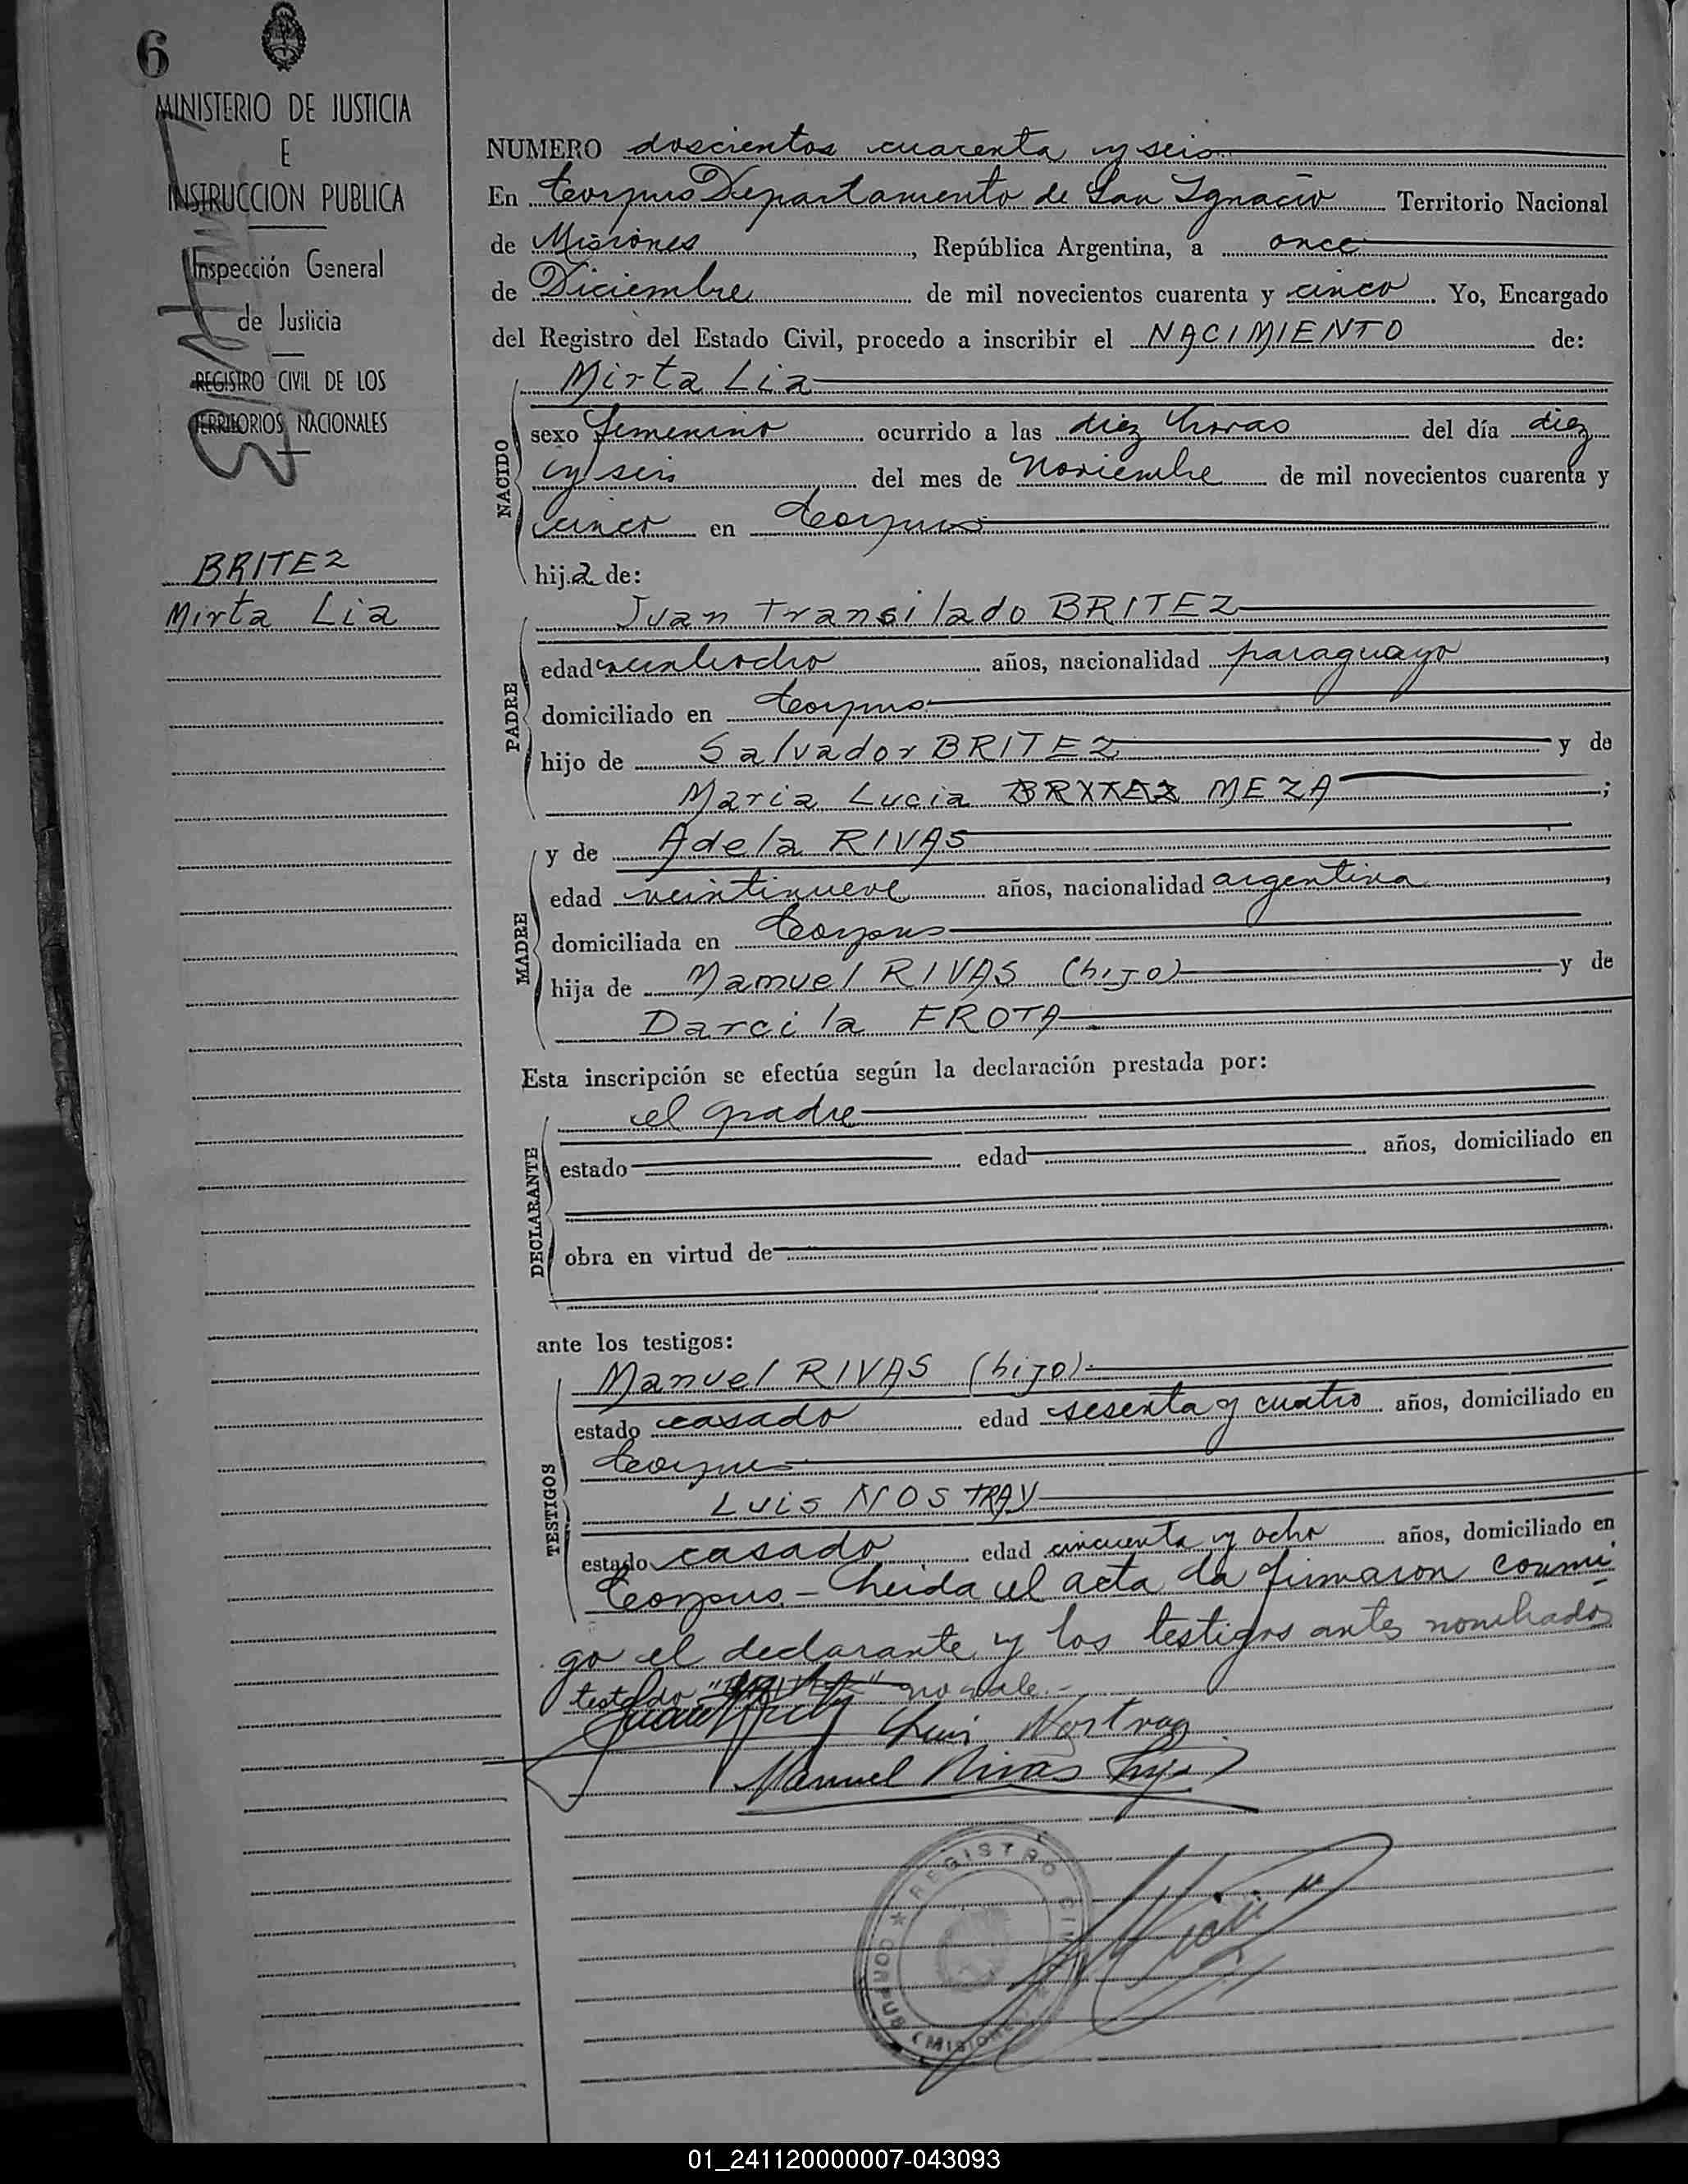 6
MINISTERIO DE JUSTICIA
E
INSTRUCCION PUBLICA
Inspección General
de Justicia
REGISTRO CIVIL DE LOS
TERRITORIOS NACIONALES
BRITEZ
Mirta Lia
NUMERO doscientos cuarenta y seis
En Corpus Departamento de San Ignacio Territorio Nacional
de Misiones, República Argentina, a once
de Diciembre de mil novecientos cuarenta y cinco. Yo, Encargado
del Registro del Estado Civil, procedo a inscribir el NACIMIENTO de:
NACIDO
Mirta Lia
sexo femenino ocurrido a las diez horas del día diez
y seis del mes de Noviembre de mil novecientos cuarenta y
cinco en Corpus
hija de:
PADRE
Juan Transilado BRITEZ
edad veintiocho años, nacionalidad paraguayo,
domiciliado en Corpus
hijo de Salvador BRITEZ y de
Maria Lucia BRITEZ MEZA;
MADRE
y de Adela RIVAS
edad veintinueve años, nacionalidad argentina,
domiciliada en Corpus
hija de Mamuel RIVAS (hijo) y de
Darcila FROTA
Esta inscripción se efectúa según la declaración prestada por:
DECLARANTE
el padre
estado edad años, domiciliado en
obra en virtud de
ante los testigos:
TESTIGOS
Manuel RIVAS (hijo)
estado casado edad sesenta y cuatro años, domiciliado en
Corpus
Luis NOSTRAY
estado casado edad cincuenta y ocho años, domiciliado en
Corpus - Leida el acta la firmaron conmi
go el declarante y los testigos antes nombrados
testado "BRITEZ" no vale.-
Luis Nostray
Manuel Rivas hijo
REGISTRO CIVIL
CORPUS (MISIONES)
01_241120000007-043093